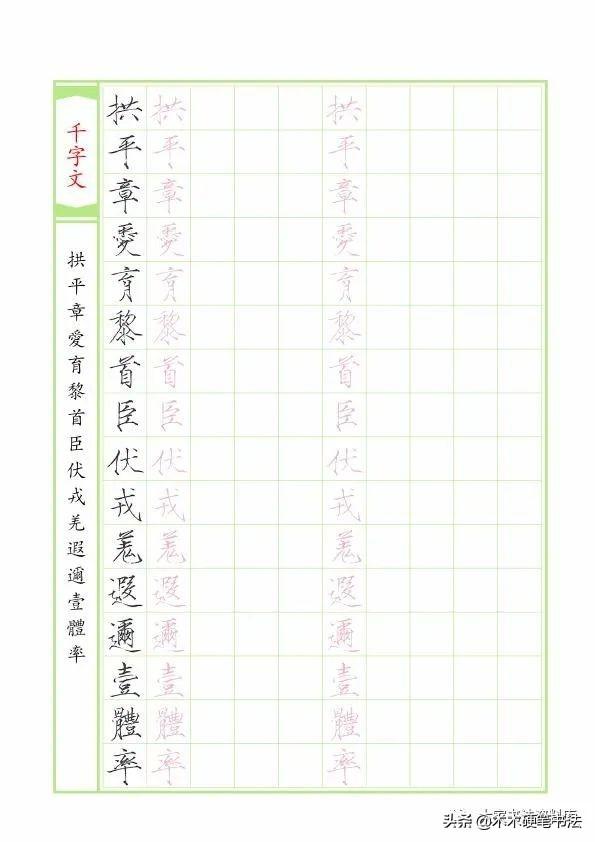 千字文
拱平章愛育黎首臣伏戎羌遐邇壹體率
拱平章愛育黎首臣伏戎羌遐邇壹體率
拱平章愛育黎首臣伏戎羌遐邇壹體率
拱平章愛育黎首臣伏戎羌遐邇壹體率
头条 @木木硬笔书法